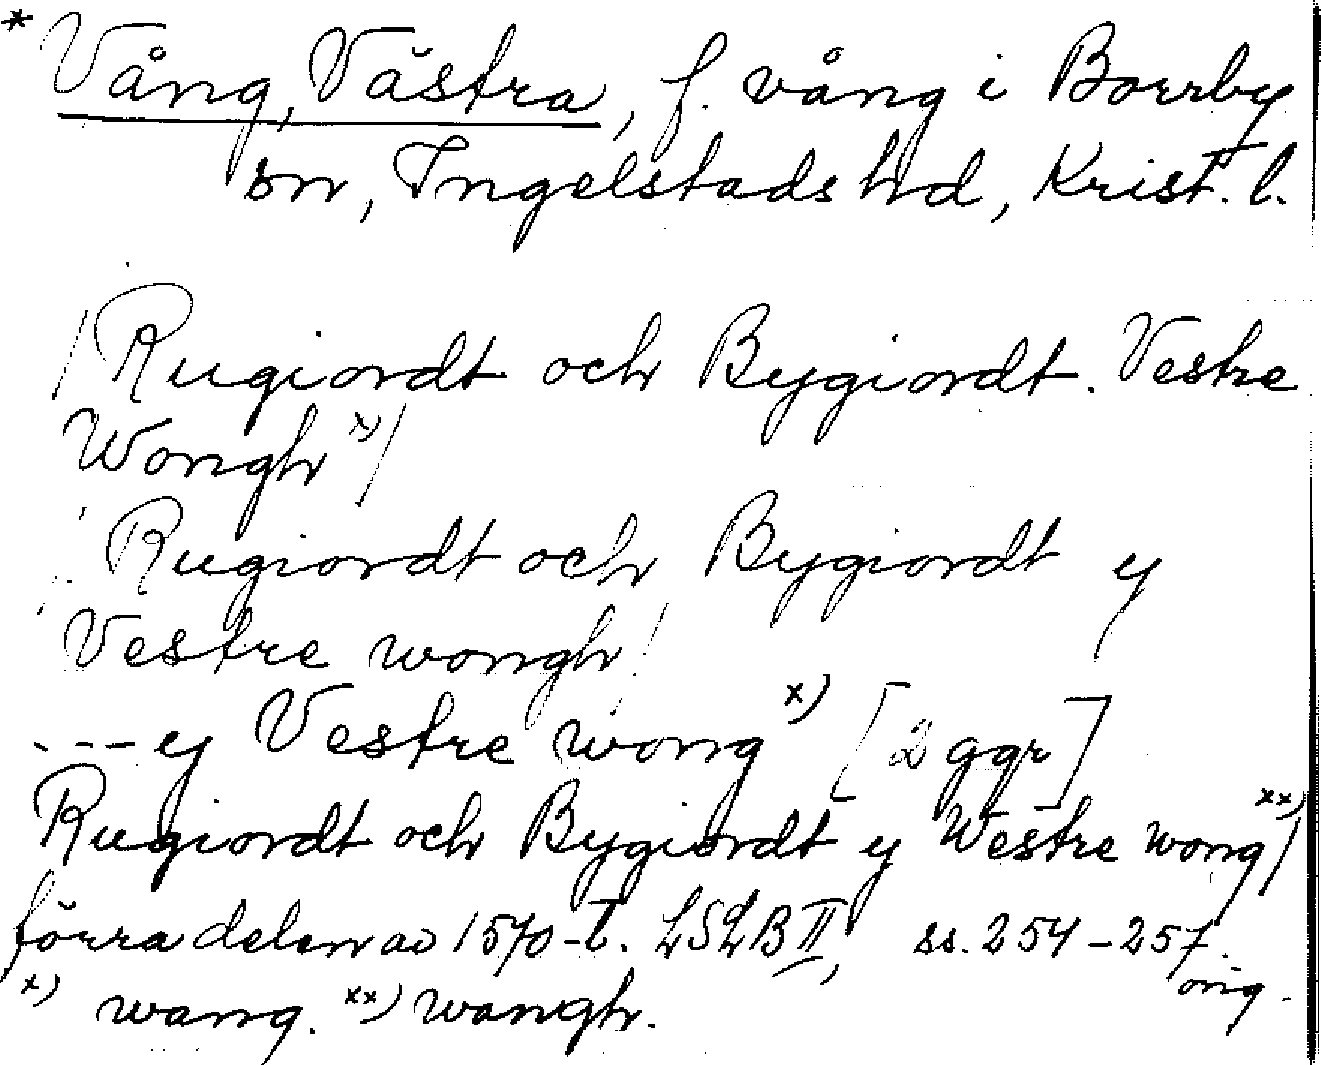 * Vång, Västra, f. vång i Borrby
sn, Ingelstads hd, Krist. l.
/Rugiordt och Bygiordt. Vestre
Wongh x)/
/Rugiordt och Bygiordt y
Vestre wongh/
--- y Vestre wong x) [2 ggr]
Rugiordt och Bygiordt y Westre wong xx)/
förra delen av 1570-t. LSLB II, ss. 254-257.
orig.
x) wang. xx) wangh.